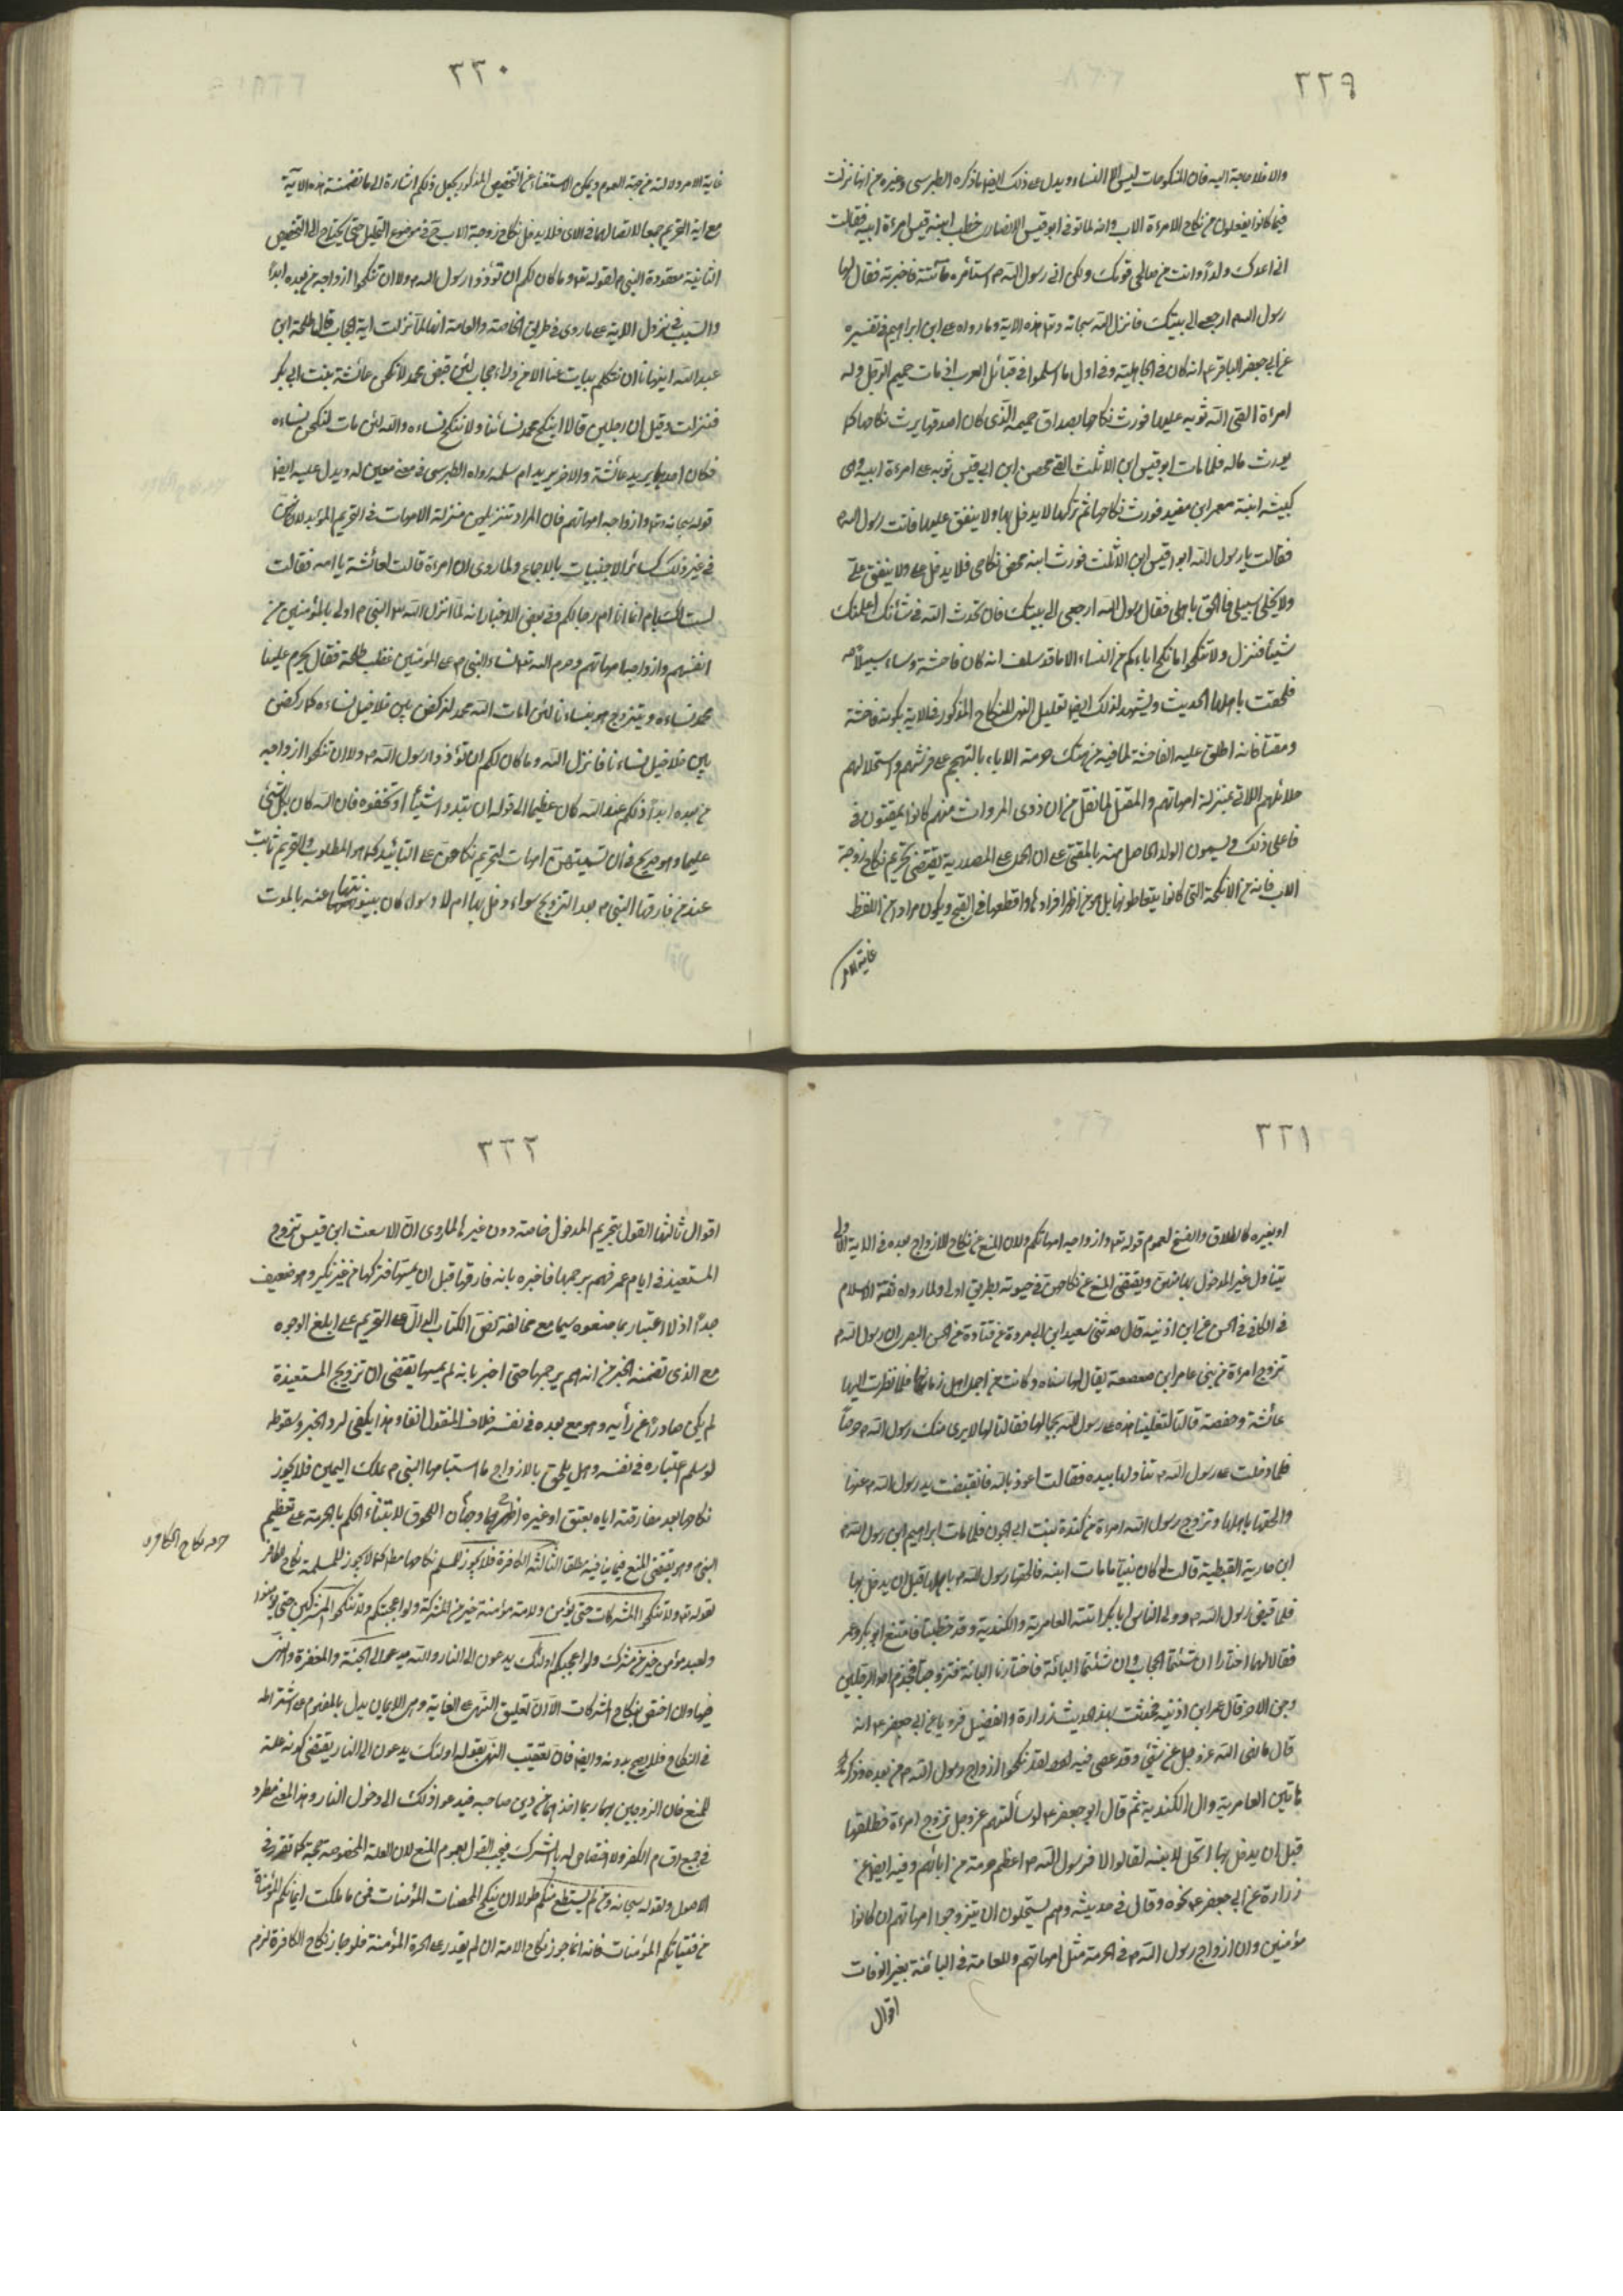 ٢٢٩
والا فلا حاجة اليه فان المنكوحات ليس الا النساء ويدل على ذلك ايضا ما ذكره الطبرسى وغيره من انها نزلت
فيما كانوا يفعلون من نكاح الامرءة الاب وانه لما توفى ابو قيس الانصارى خطب ابنه قيس امرءة ابيه فقالت
انى اعدك ولدا وانت من صالحى قومك ولكن اتى رسول الله ص استأمره فأتته فاخبرته فقال لها
رسول الله ارجعى الى بيتك فانزل الله سبحانه وتعا هذه الاية وما رواه على ابن ابراهيم فى تفسيره
عن ابى جعفر الباقر ع انه كان فى الجاهلية وفى اول ما اسلموا فى قبائل العرب اذ مات حميم الرجل وله
امرءة القى الثوبه عليها فورث نكاحها بصداق حميمه الذى كان اصدقها يرث نكاحها كما
يورث ماله فلما مات ابو قيس ابن الاثلت القى محصن ابن ابى قيس ثوبه على امرءة ابيه وهى
كبيشه ابنة معمر ابن معبد فورث نكاحها ثم تركها لا يدخل بها ولا ينفق عليها فاتت رسول الله ص
فقالت يا رسول الله ابو قيس ابن الاثلت فورث ابنه محصن نكاحى فلا يدخل على ولا ينفق على
ولا يخلى سبيلى فالحق باهلى فقال رسول الله ارجعى الى بيتك فان يحدث الله فى شأنك اعلمتك
شيئا فنزل ولا تنكحوا ما نكح اباءكم من النساء الا ما قد سلف انه كان فاحشة وساء سبيلا
فلحقت باهلها الحديث ويشهد لذلك ايضا تعليل النهى للنكاح المذكور فى الاية بكونه فاحشة
ومقتا فانه اطلق عليه الفاحشة لما فيه من هتك حرمة الاباء بالتهجم على فرشهم واستحلالهم
حلائلهم اللاتى بمنزلة امهاتهم والمقت لما نقل من ان ذوى المروات منهم كانوا يمقتون
فاعلى ذلك ويسمون الولد الحاصل منه بالمقتى على ان الحمل على المصدرية يقتضى تحريم نكاح زوجة
الاب فانه من الانكحة التى كانوا يتعاطونها بل هو من اظهر افراده واقطعها فى القبح ويكون مرادا من اللفظ
غاية الامر
٢٣٠
غاية الامر دلالته من جهة العموم ويمكن الاستغناء عن التخصيص المذكور بجعل ذلكم اشارة الى ما تضمنته هذه الاية
مع اية التحريم جميعا لاتصالهما فى الاى فلا يدخل نكاح زوجة الاب ح فى موضوع التحليل حتى يحتاج الى التخصيص
الثانية معقودة النبى ص لقوله تعا وما كان لكم ان تؤذوا رسول الله ولا ان تنكحوا ازواجه من بعده ابدا
والسبب فى نزول الاية على ما روى فى طريق الخاصة والعامة انه لما نزلت اية الحجاب قال طلحة ابن
عبدالله اينهانا ان نتكلم ببنات عمنا الا من وراء حجاب لئن قبض محمد لانكحن عائشة بنت ابى بكر
فنزلت وقيل ان رجلين قالا اينكح محمد نسائنا ولا ننكح نساءه والله لئن مات لننكحن نساءه
فكان احدهما يريد عائشة والاخر يريد ام سلمه رواه الطبرسى ويدل عليه ايضا
قوله سبحانه وتعا وازواجه امهاتهم فان المراد تنزيلهن منزلة الامهات فى التحريم المؤبد
فى غير ذلك كسائر الاجنبيات بالاجماع ولما روى ان امرءة قالت لعائشة يا امه فقالت
لست لك بام انما انا ام رجالكم وفى بعض الاخبار انه لما انزل الله تعا النبى ص اولى بالمؤمنين من
انفسهم وازواجه امهاتهم وحرم الله تعا نساء النبى ص على المؤمنين غضب طلحة فقال يحرم علينا
محمد نساءه ويتزوج هو بنساءنا لئن امات الله محمد لنركضن بين خلاخيل نساءه كما ركض
بين خلاخيل نساءنا فانزل الله وما كان لكم ان تؤذوا رسول الله ص ولا ان تنكحوا ازواجه
من بعده ابدا ذلكم عند الله كان عظيما الى قوله ان تبدوا شيئا او تخفوه فان الله كان بكل شئ
عليما وهو صريح فى ان تسميتهن امهات لتحريم نكاحهن على التأبيد كما هو المطلوب والتحريم ثابت
عند من فارقها النبى ص بعد التزويج سواء دخل بها ام لا وسواء كان بينونتها عنه بالموت
٢٣١
او بغيره كالطلاق والفسخ لعموم قوله تعا وازواجه امهاتكم ولان المنع من نكاح الازواج بعده فى الاية الاولى
يتناول غير المدخول بها منهن ويقتضى المنع عن نكاحهن فى حيوته بطريق اولى ولما رواه ثقة الاسلام
فى الكافى فى الحسن عن ابن اذينه قال حدثنى سعيد ابن ابى عروة عن قتادة عن الحسن البصرى ان رسول الله ص
تزوج امرءة من بنى عامر ابن صعصعه يقال لها سناه وكانت من اجمل اهل زمانها فلما نظرت اليها
عائشة وحفصة قالتا لتغلبنا هذه على رسول الله بجمالها فقالتا لها لا يرى منك رسول الله ص حرصا
فلما دخلت على رسول الله ص تناولها بيده فقالت اعوذ بالله فانقبضت يد رسول الله ص عنها
والحقها باهلها وتزوج رسول الله امرءة من كندة بنت ابى الجون فلما مات ابراهيم ابن رسول الله ص
ابن مارية القبطية قالت لو كان نبيا ما مات ابنه فالحقها رسول الله ص باهلها قبل ان يدخل بها
فلما قبض رسول الله ص وولى الناس ابا بكر اتته العامرية والكندية وقد خطبتا فاجتمع ابو بكر وعمر
فقالا لهما اختارا ان شئتما الحجاب وان شئتما البائة فاختارتا البائة فتزوجتا فجذم احد الرجلين
وجن الاخر قال عمر ابن اذينه فحدثت بهذا الحديث زرارة والفضيل فرويا عن ابى جعفر ع انه
قال ما نهى الله عز وجل عن شئ الا وقد عصى فيه لقد نكحوا ازواج رسول الله ص من بعده وذكر
هاتين العامرية والكندية ثم قال ابو جعفر ع لو سألتهم عن رجل تزوج امرءة فطلقها
قبل ان يدخل بها اتحل لابنه لقالوا لا فرسول الله ص اعظم حرمة من ابائهم وفيه ايضا عن
زرارة عن ابى جعفر ع نحوه وقال فى حديثه وهم يستحلون ان يتزوجوا امهاتهم ان كانوا
مؤمنين وان ازواج رسول الله ص فى الحرمة مثل امهاتهم وللعامة فى البائنة بغير الوفات
اقوال
٢٣٢
اقوال ثالثها القول بتحريم المدخول خاصة دون غيرها لما روى ان الاسعث ابن قيس تزوج
المستعيذة فى ايام عمر فهم برجمها فاخبره بانه فارقها قبل ان يمسها فتركها من غير نكير وهو ضعيف
جدا اذ لا اعتبار بما صنعوه سيما مع مخالفة نص الكتاب الدال على التحريم على ابلغ الوجوه
مع الذى تضمنه الخبر من انه هم برجمها حتى اخبر بانه لم يمسها يقتضى ان تزويج المستعيذة
لم يكن صادرا عن رأيه وهو مع بعده فى نفسه خلاف المنقول انفا وهذا يكفى لرد الخبر وسقوطه
لو سلم اعتباره فى نفسه وهل يلحق بالازواج ما استباحها النبى ص بملك اليمين فلا يجوز
نكاحها بعد مفارقته اياه بعتق او غيره وجهان اظهرهما اللحوق لابتناء الحكم بالحرمة على تعظيم
النبى وهو يقتضى المنع فيما ينافيه مطلقا الثالثه الكافرة فلا يجوز للمسلم نكاحها مطلقا كما لا يجوز للمسلمة نكاح الكافر
لقوله تعا ولا تنكحوا المشركات حتى يؤمن ولامة مؤمنة خير من المشركة ولو اعجبتكم ولا تنكحوا المشركين حتى يؤمنوا
ولعبد مؤمن خير من مشرك ولو اعجبكم اولئك يدعون الى النار والله يدعوا الى الجنة والمغفرة والنهى
فيها وان اختص بنكاح المشركات الا ان تعليق النهى على الغاية وهى الايمان يدل بالمفهوم على اشتراطه
فى النكاح فلا يصح بدونه وايضا فان تعقيب النهى بقوله اولئك يدعون الى النار يقتضى كونه علة
للمنع فان الزوجين ربما اخذ احدهما من دين صاحبه فيدعوا ذلك الى دخول النار وهذا المعنى مطرد
فى جميع اقسام الكفر ولا اختصاص له بالشرك فيجب القول بعموم المنع لان العلة المنصوصه حجة كما تقرر فى
الاصول ولقوله سبحانه ومن لم يستطع منكم طولا ان ينكح المحصنات المؤمنات فمن ما ملكت ايمانكم المؤمنات
من فتياتكم المؤمنات فانه انما جوز نكاح الامة ان لم يقدر على الحرة المؤمنة فلو جاز نكاح الكافرة لزم
حرمة نكاح الكافره